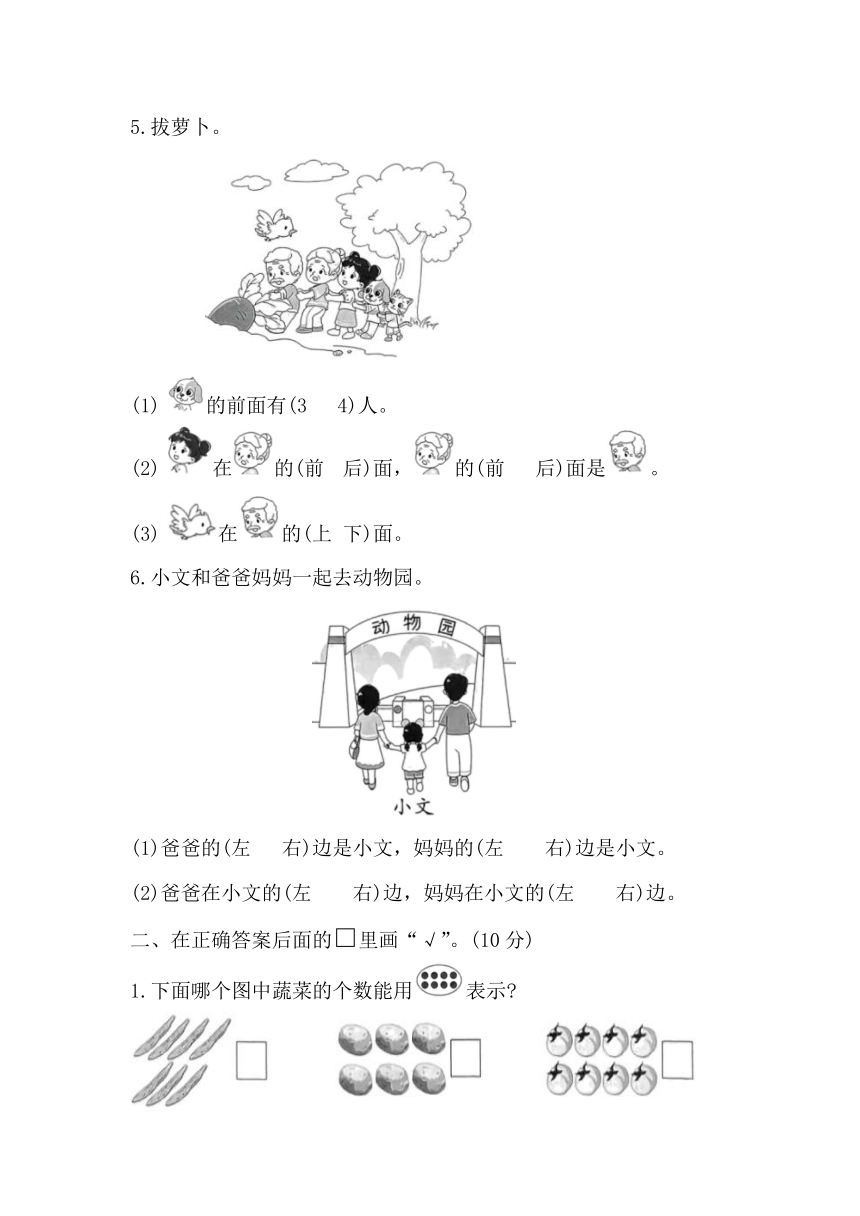 5.拔萝卜。
(1) 的前面有(3 4)人。
(2) 在 的(前 后)面, 的(前 后)面是 。
(3) 在 的(上 下)面。
6.小文和爸爸妈妈一起去动物园。
动物园
小文
(1)爸爸的(左 右)边是小文,妈妈的(左 右)边是小文。
(2)爸爸在小文的(左 右)边,妈妈在小文的(左 右)边。
二、在正确答案后面的□里画“√”。(10分)
1.下面哪个图中蔬菜的个数能用 表示?